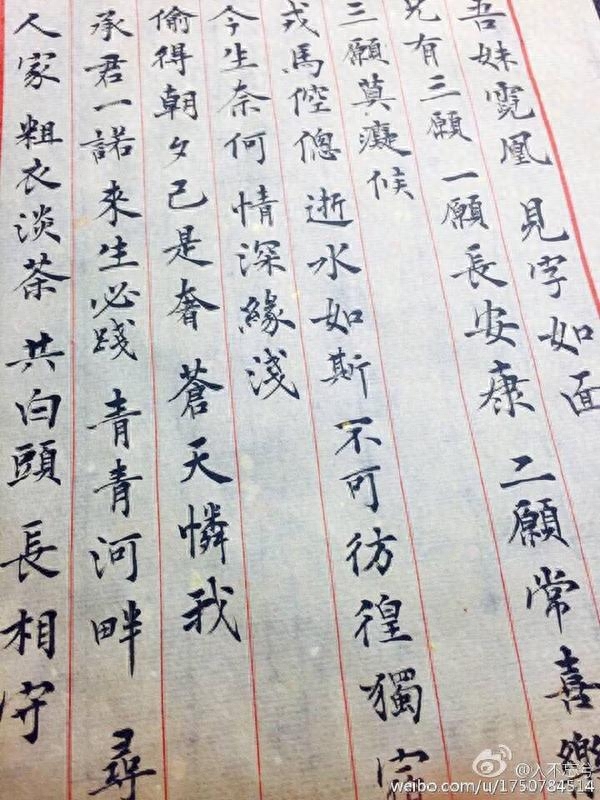 吾妹霓凰 見字如面
兄有三願 一願長安康 二願常喜樂
三願莫癡候
戎馬倥傯 逝水如斯 不可彷徨獨
今生奈何 情深緣淺
偷得朝夕已是奢 蒼天憐我
承君一諾 來生必踐 青青河畔 尋
人家 粗衣淡茶 共白頭 長相守
weibo.com/u/1750784514